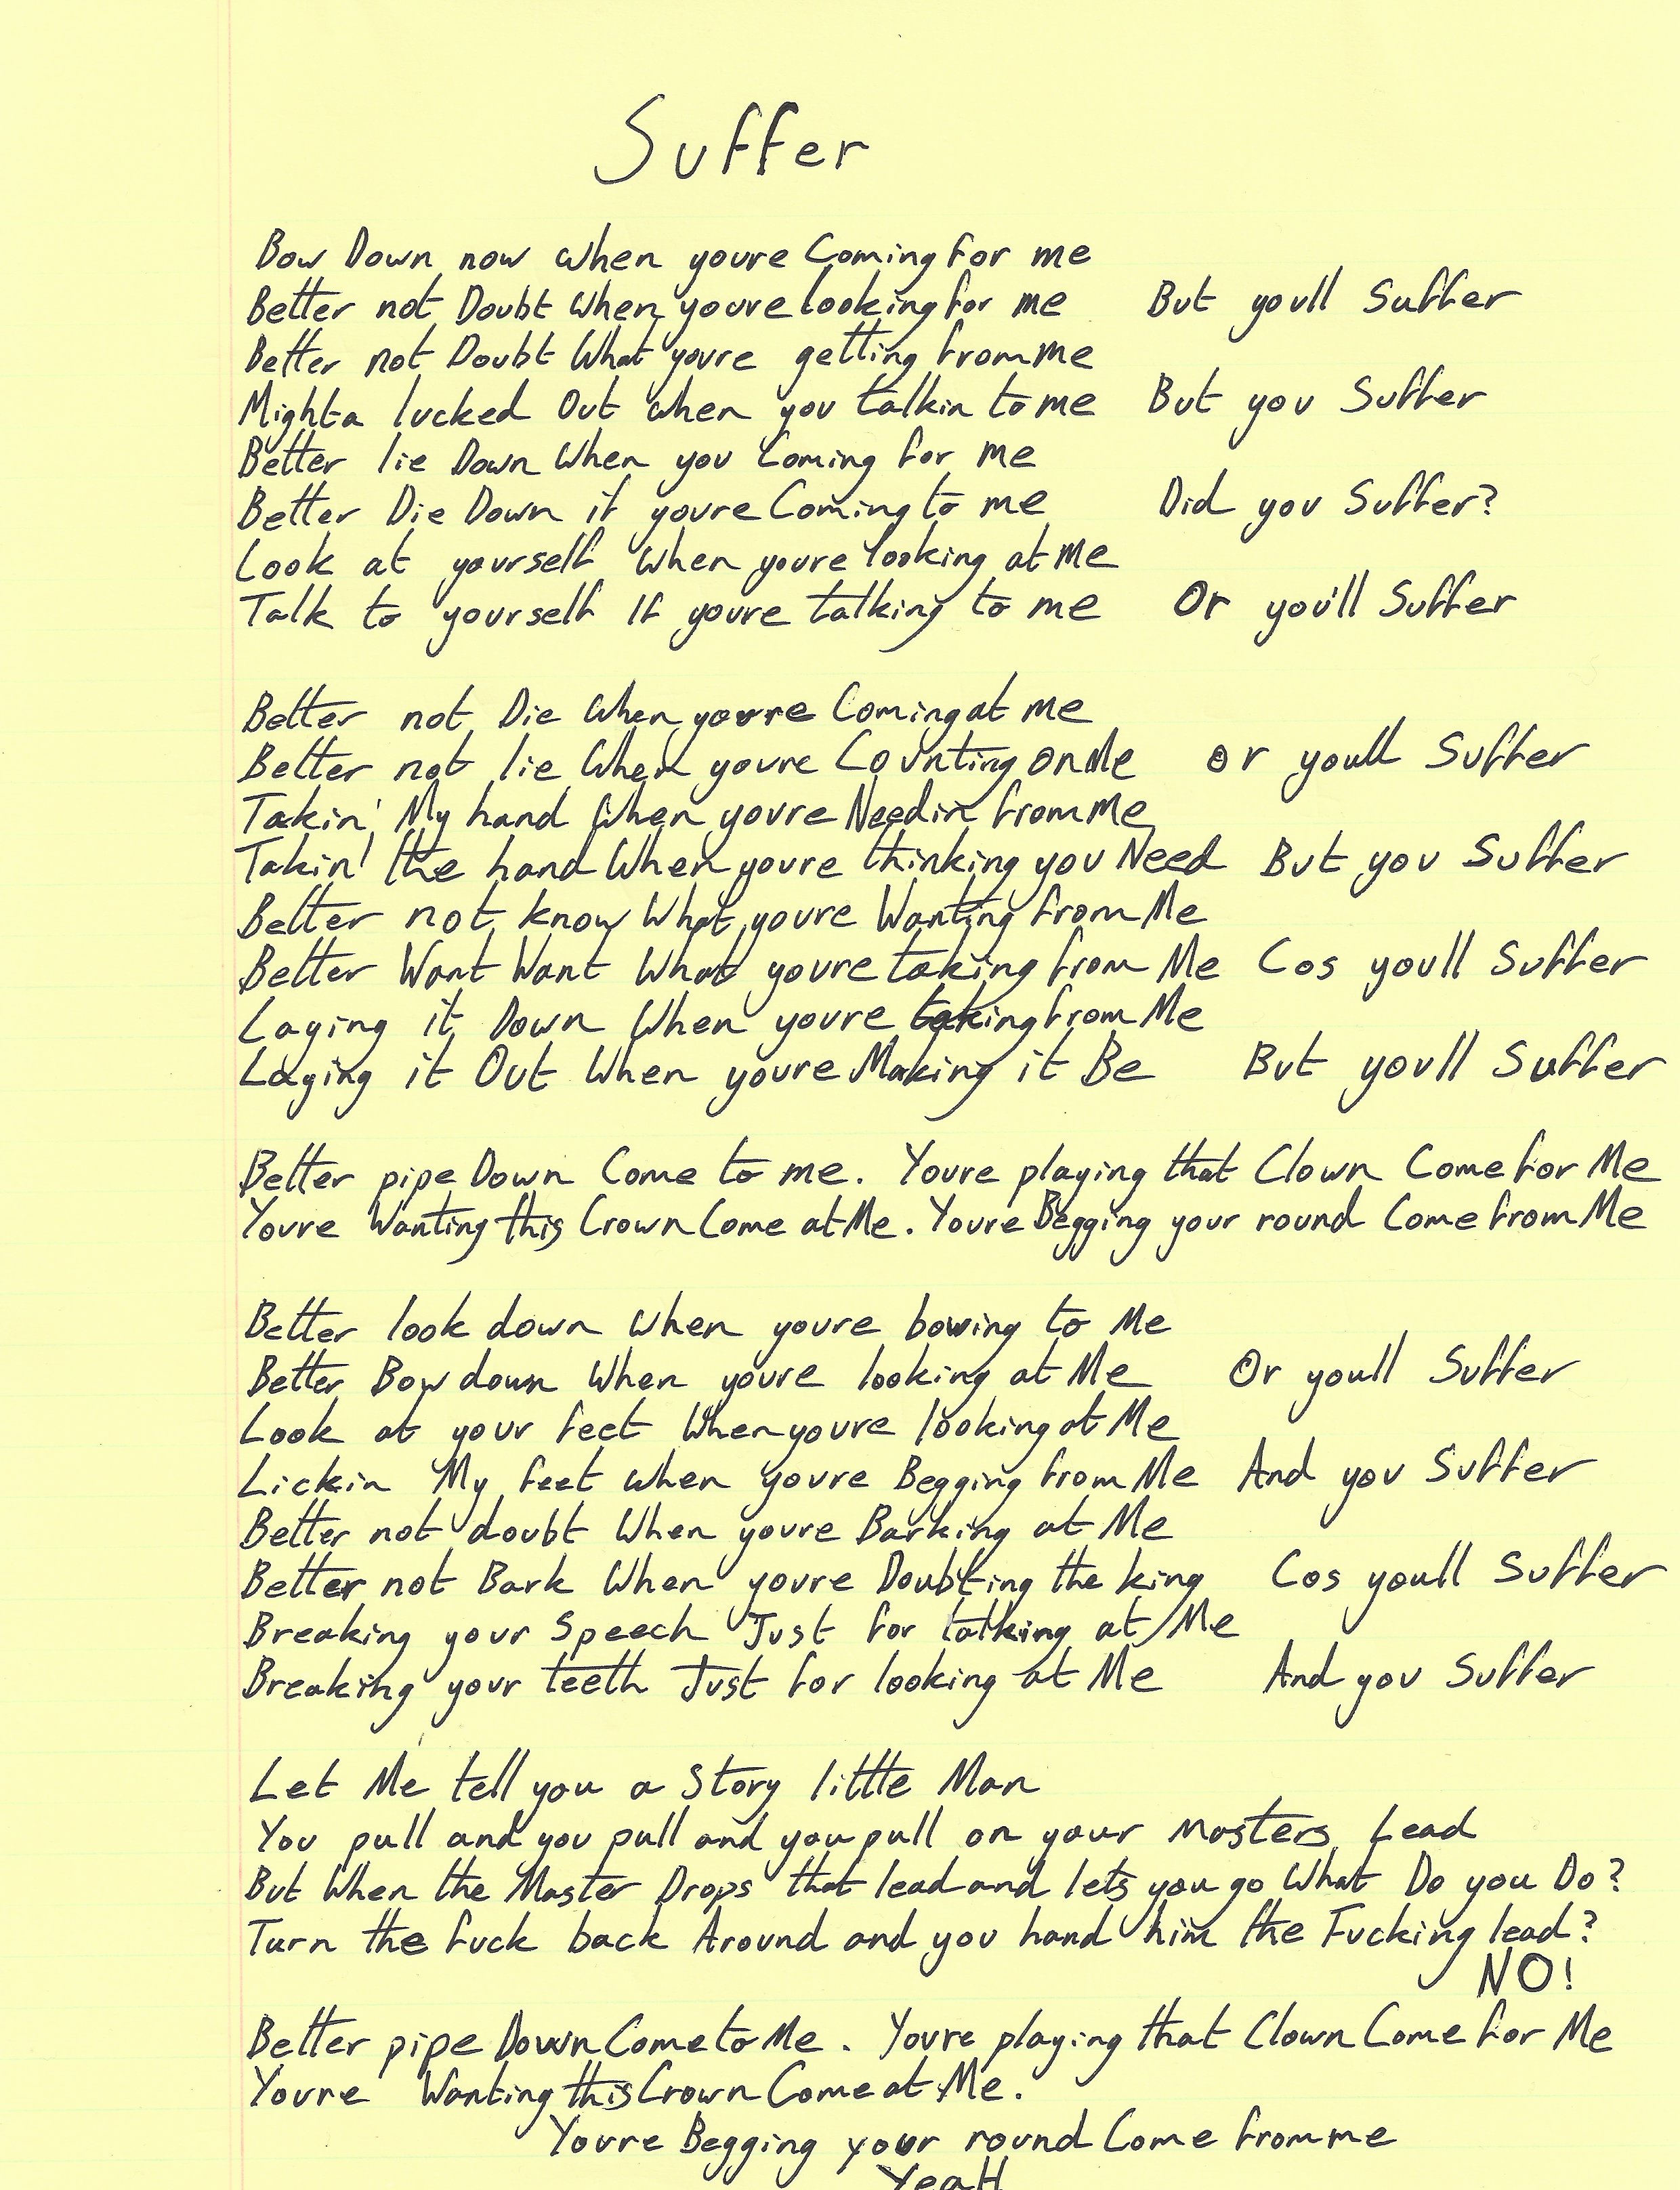 Suffer
Bow Down now when youre Coming for me
Better not Doubt When youre looking for me But youll Suffer
Better not Doubt What youre getting from me
Mighta lucked Out when you talkin to me But you Suffer
Better lie Down When you Coming for me
Better Die Down if youre Coming to me Did you Suffer?
Look at yourself When youre looking at me
Talk to yourself If youre talking to me Or you'll Suffer
Better not Die When youre Coming at me
Better not lie When youre Counting on Me or youll Suffer
Takin' My hand When youre Needin from Me
Takin' the hand When youre thinking you Need But you Suffer
Better not know What youre Wanting from Me
Better Want Want What youre taking from Me Cos youll Suffer
Laying it Down When youre taking from Me
Laying it Out When youre Making it Be But youll Suffer
Better pipe Down Come to me. Youre playing that Clown Come for Me
Youre Wanting this Crown Come at Me. Youre Begging your round Come from Me
Better look down When youre bowing to Me
Better Bow down When youre looking at Me Or youll Suffer
Look at your feet When youre looking at Me
Lickin My feet when youre Begging from Me And you Suffer
Better not doubt When youre Barking at Me
Better not Bark When youre Doubting the king Cos youll Suffer
Breaking your Speech Just for talking at Me
Breaking your teeth Just for looking at Me And you Suffer
Let Me tell you a Story little Man
You pull and you pull and you pull on your Masters Lead
But When the Master Drops that lead and lets you go What Do you Do?
Turn the fuck back Around and you hand him the Fucking lead?
NO!
Better pipe Down Come to Me. Youre playing that Clown Come for Me
Youre Wanting this Crown Come at Me.
Youre Begging your round Come from me
YeaH